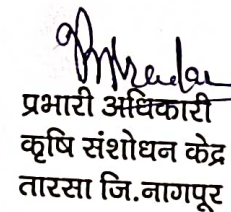 प्रभारी अधिकारी
कृषि संशोधन केंद्र
तारसा जि.नागपूर